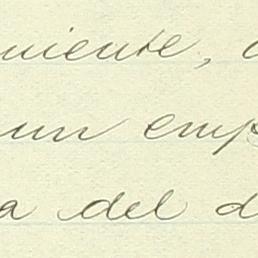 niente,
un emp
a del d